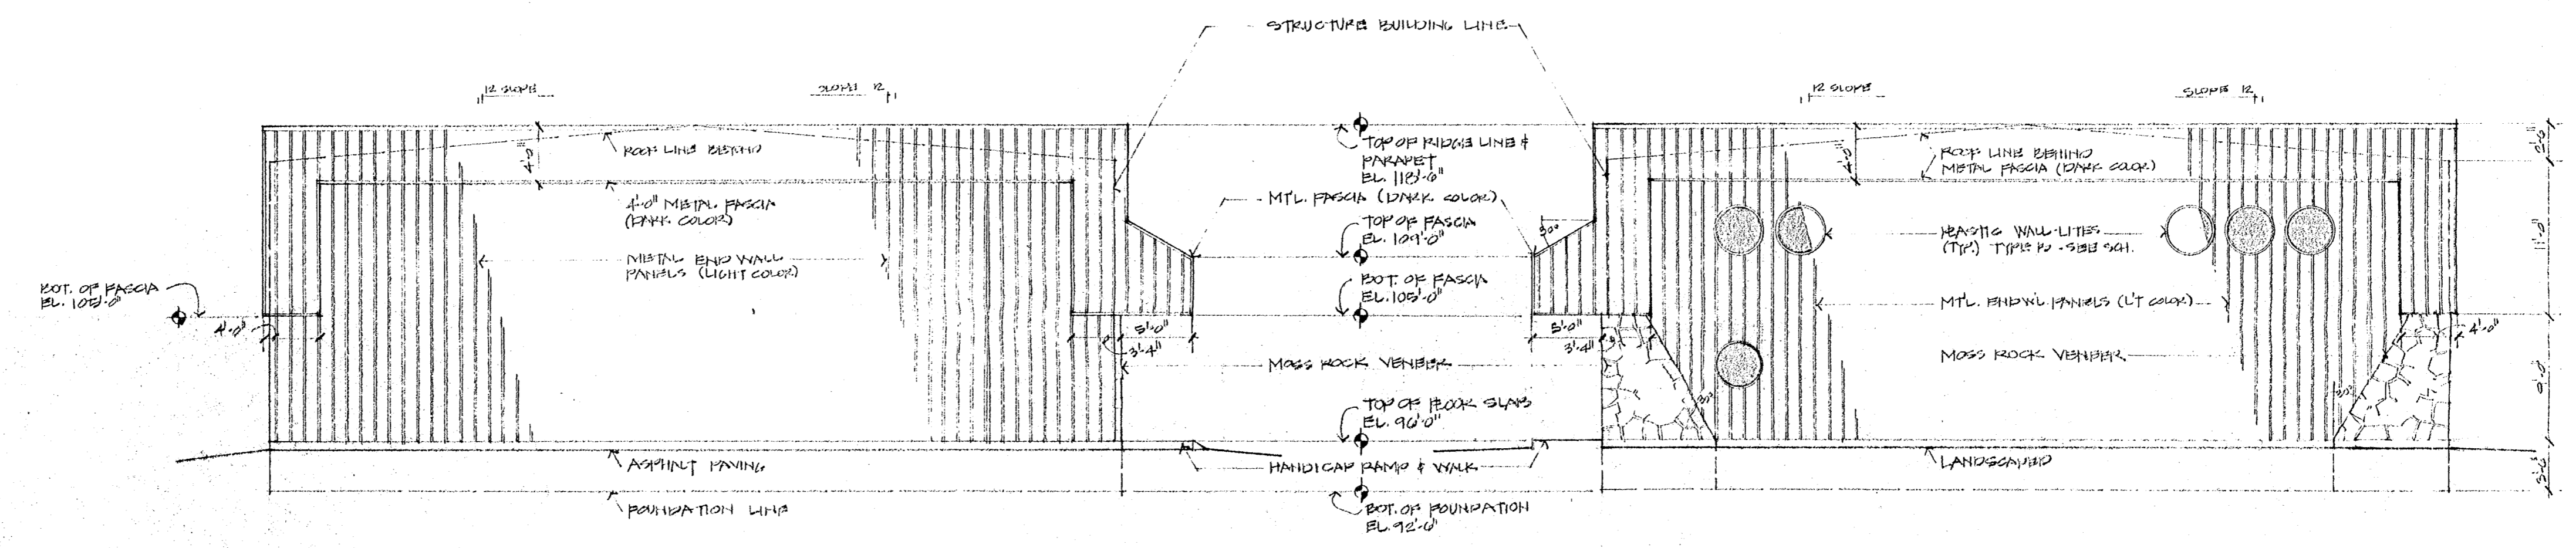 STRUCTURE BUILDING LINE
12 SLOPE
SLOPE 12
12 SLOPE
SLOPE 12
4'-0"
ROOF LINE BEHIND
4'-0" METAL FASCIA
(DARK COLOR)
METAL END WALL
PANELS (LIGHT COLOR)
BOT. OF FASCIA
EL. 105'-0"
4'-0"
5'-0"
3'-4"
ASPHALT PAVING
FOUNDATION LINE
TOP OF RIDGE LINE &
PARAPET
EL. 118'-6"
MTL. FASCIA (DARK COLOR)
TOP OF FASCIA
EL. 109'-0"
BOT. OF FASCIA
EL. 105'-0"
MOSS ROCK VENEER
TOP OF FLOOR SLAB
EL. 96'-0"
HANDICAP RAMP & WALK
BOT. OF FOUNDATION
EL. 92'-6"
30°
5'-0"
3'-4"
4'-0"
ROOF LINE BEHIND
METAL FASCIA (DARK COLOR)
PLASTIC WALL-LITES
(TYP.) TYPE - SEE SCH.
MT'L. ENDW'L PANELS (L'T COLOR)
MOSS ROCK VENEER
LANDSCAPED
4'-0"
11'-0"
9'-0"
3'-6"